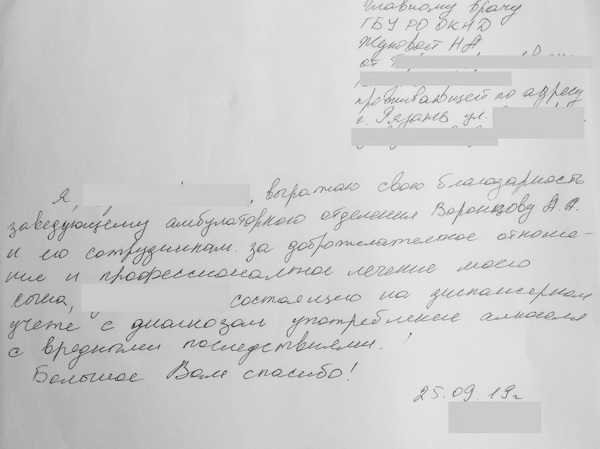 Главному врачу
ГБУ РО ОКНД
Жуковой НА
от
проживающей по адресу
г. Рязань ул.
Я, , выражаю свою благодарность
заведующему амбулаторного отделения Воронцову А. А.
и его сотрудникам за доброжелательное отноше-
ние и профессиональное лечение моего
сына, состоящего на диспансерном
учете с диагнозом употребление алкоголя
с вредными последствиями.
Большое Вам спасибо!
25.09.19г